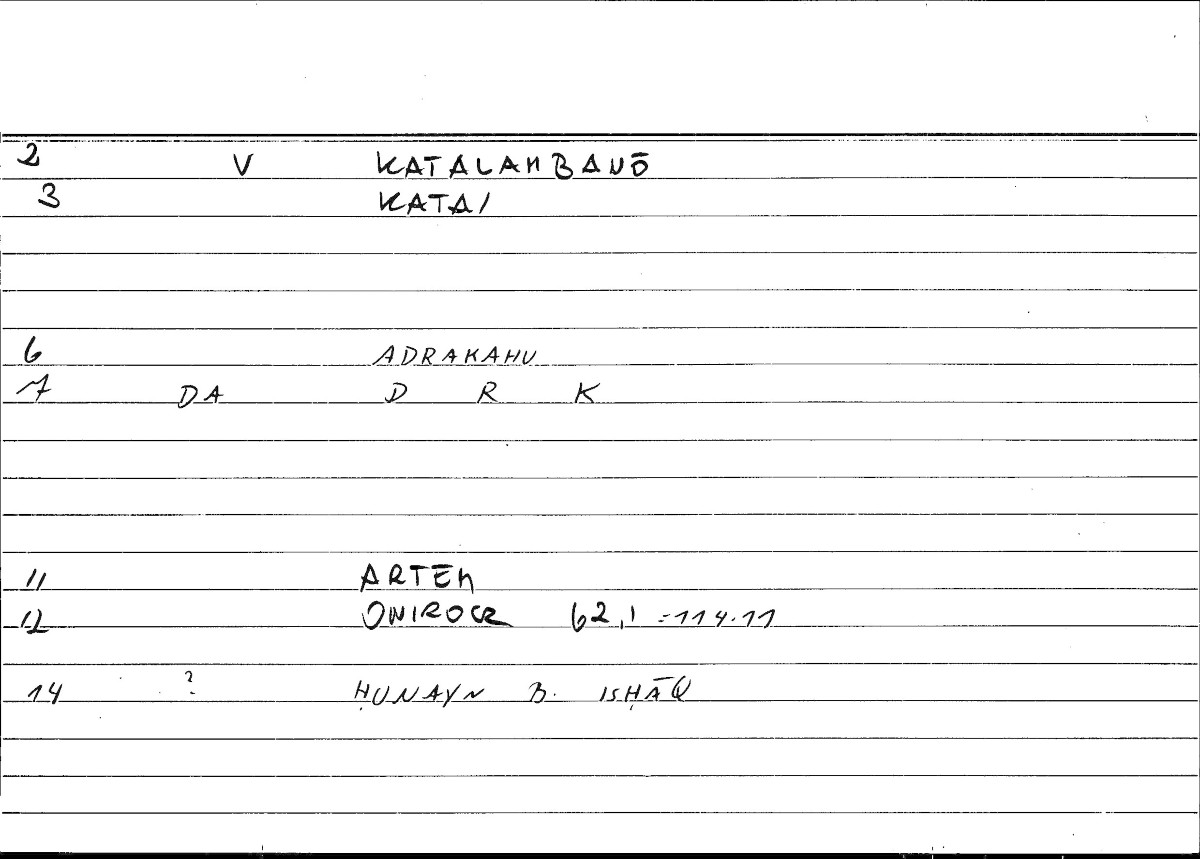 2 V KATALAMBANŌ
3 KATAI
6 ADRAKAHU
7 DA D R K
11 ARTEM
12 ONIROCR 62,1 = 114.11
14 ? ḤUNAYN B. ISḤĀQ